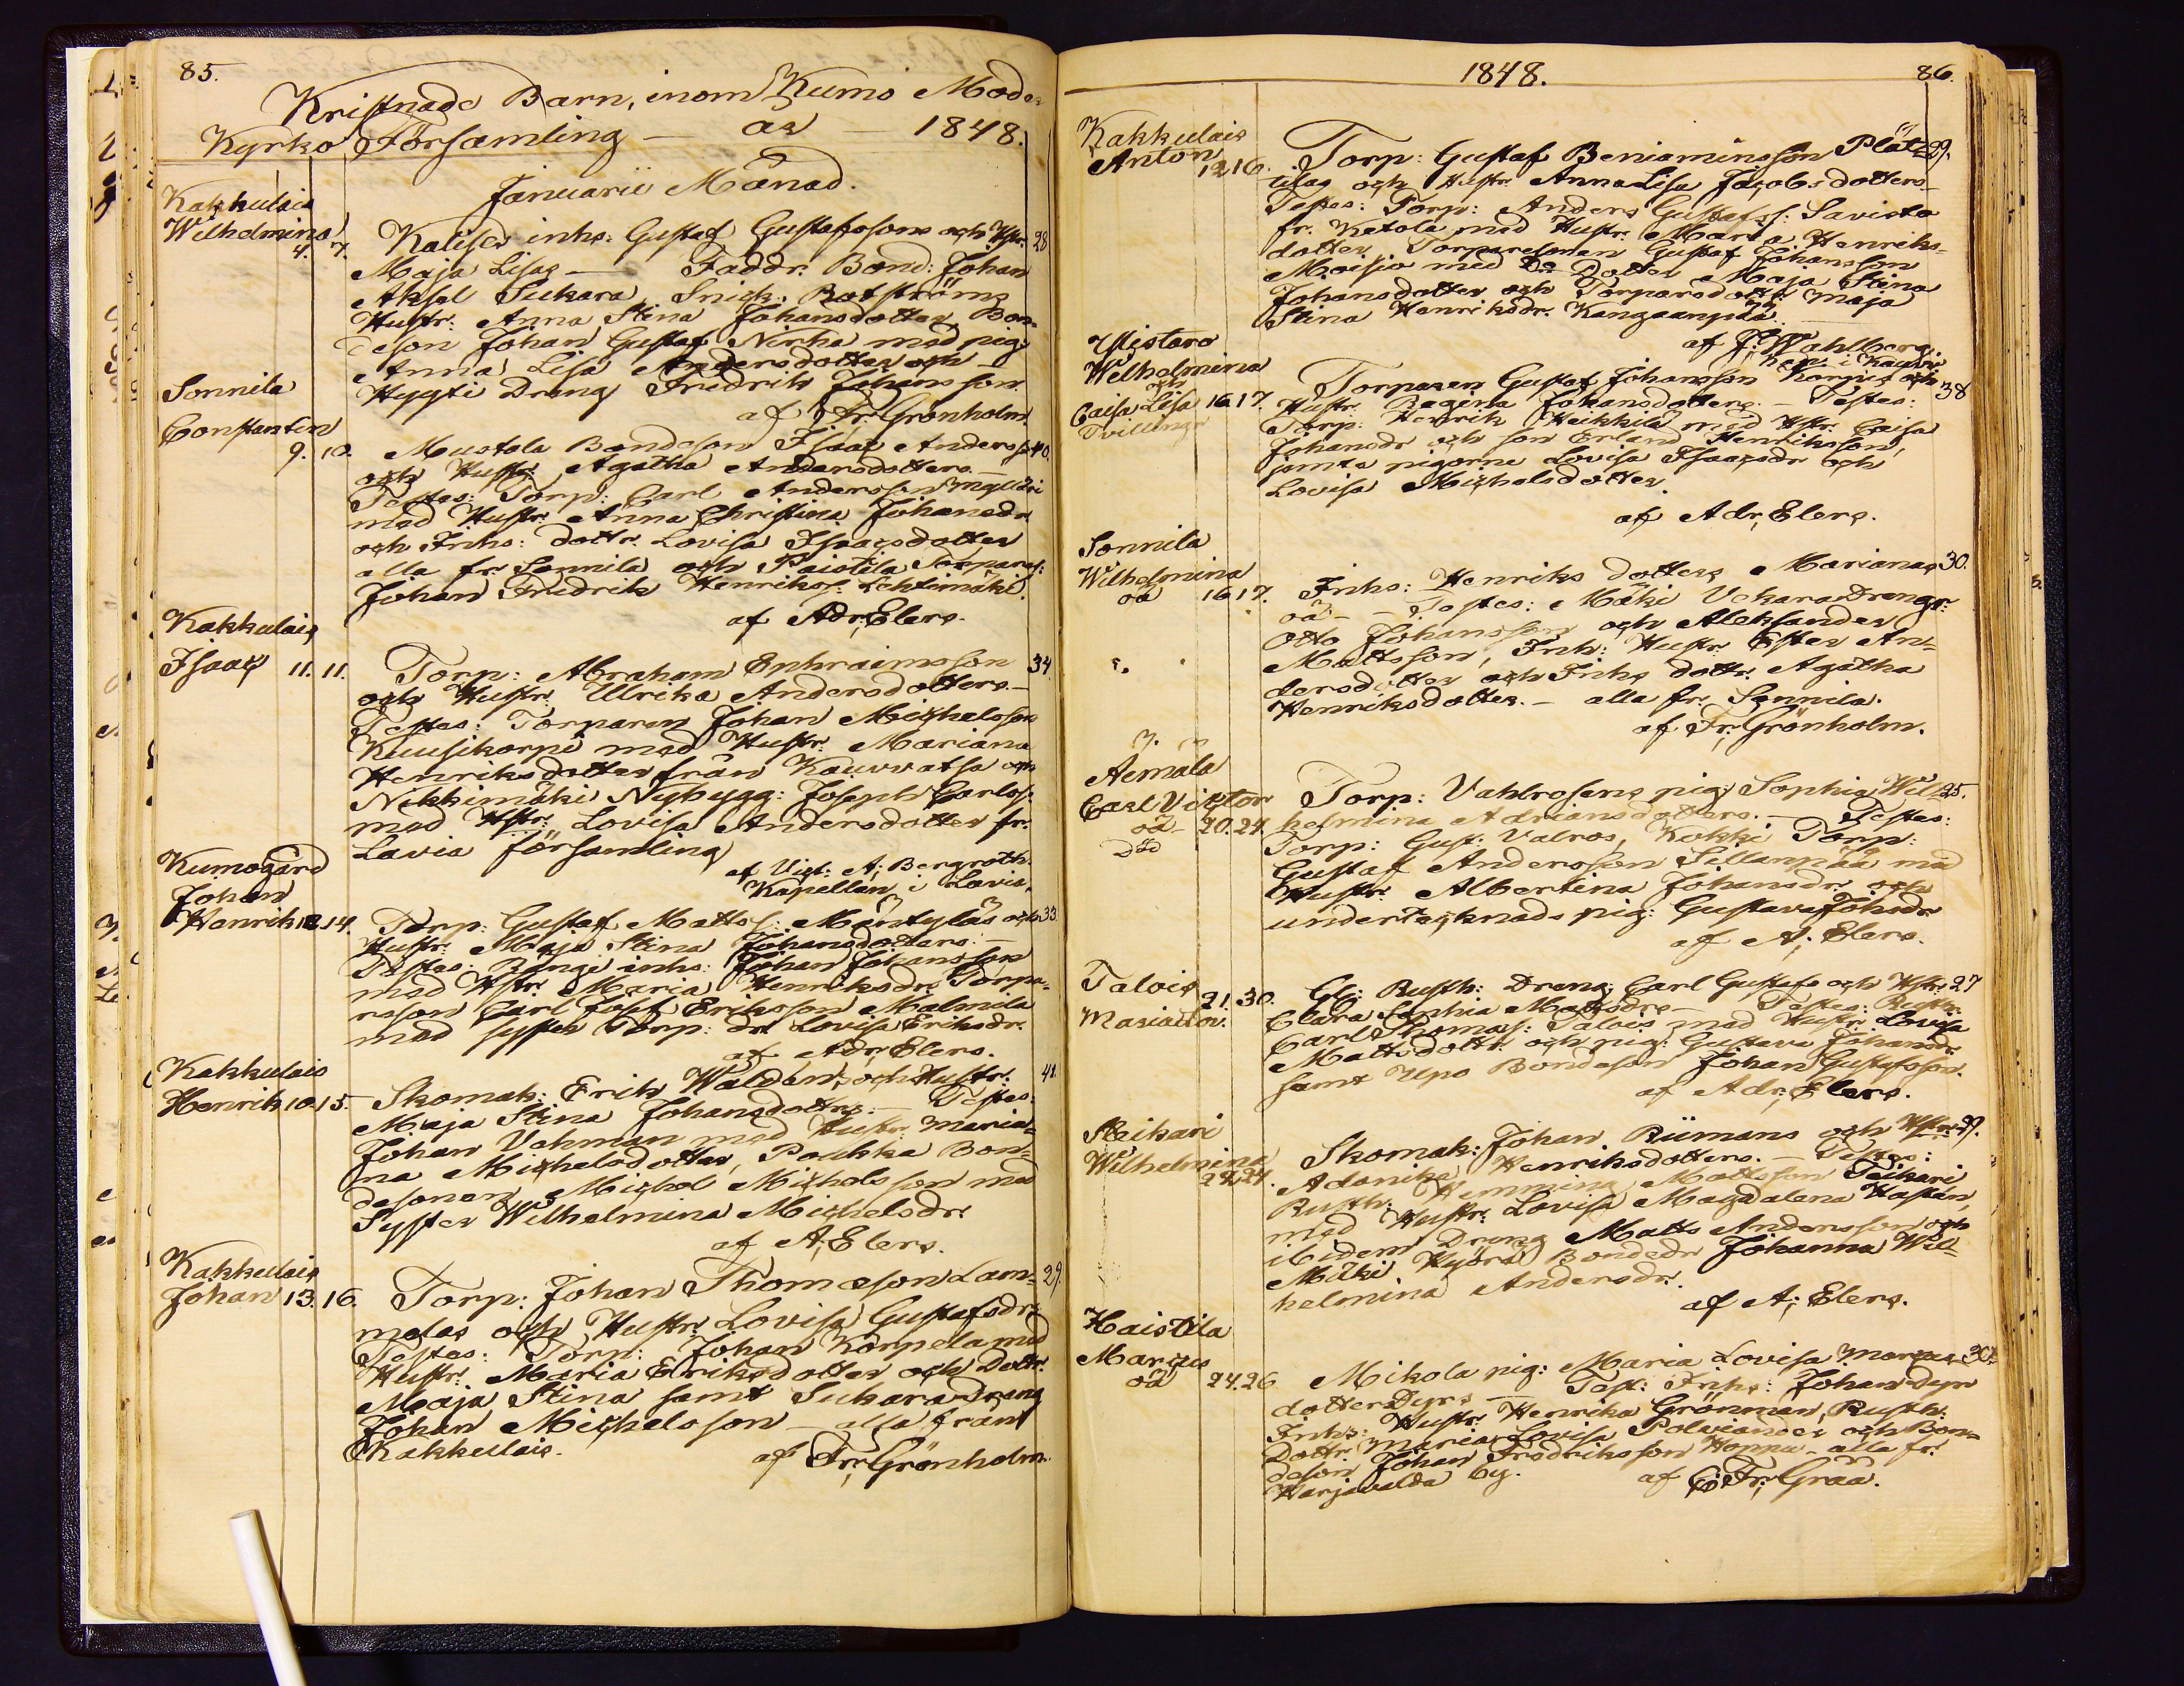 85.
Kristnade Barn, inom Kumo Moder
Kyrko Församling — år — 1848.
Januarii Månad.
Kakkulais
Wilhelmina
4. 7. Kalises inhs: Gustaf Gustafssons och Hstr: 28
Maja Lisas — Faddr. Bond: Johan
Aksel Sukara, Snick: Rotströms
Hustr: Anna Stina Johansdotter, Bon=
deson Johan Gustaf Nirha med pig:
Anna Lisa Andersdotter och
Hygti Dräng Fredrik Johansson.
af Fr: Grönholm.
Sonnila
Constantin
9. 10. Mustola Bondeson Isaac Anderss: 40.
och Hustr: Agatha Andersdotters. —
Testes: Torp: Carl Andersson Myllari
med Hustr: Anna Christina Johansdr
och Inhs: dottr. Lovisa Isaacsdotter
alla fr. Sonnila och Paistila Torpares:
Johan Fredrik Henrikss: Lehtimäki.
af Adr, Elers.
Kakkulais
Isaac 11. 11. Torp: Abraham Enhraimsson 34
och Hustr: Ulrika Andersdotters. —
Testes: Torparen Johan Michelsson
Kuusikorpi med Hustr: Mariana
Henriksdotter från Kauvatsa och
Nikkimäki Nybygg: Joseph Carlss:
med Hstr: Lovisa Andersdotter fr.
Lavia församling
af Vict: A; Bergroth.
Kapellan i Lavia.
Kumogård
Johan
Henrik 12. 14. Torp: Gustaf Mattss: Mäntyläs och 33.
Hustr: Maja Stina Johansdotters. —
Testes: Bänge inhs: Johan Johansson
med Hstr: Maria Henriksdr: Torpa=
resson Carl Josef Eriksson Malmila
med syster Torp: dr: Lovisa Eriksdr.
af Adr; Elers.
Kakkulais
Henrik 10. 15. Skomak: Erik Waldens och Hustr: 41.
Maja Stina Johansdottrs. — Testes:
Johan Vahman med Hustr: Maria=
na Michelsdotter, Pouhka Bon=
desonen Michel Michelsson med
Syster Wilhelmina Michelsdr.
af A; Elers.
Kakkulais
Johan 13. 16. Torp: Johan Thomasson Lam= 29.
malas och Hustr: Lovisa Gustafsdr.
Testes: Torp: Johan Korpela med
Hustr: Maria Eriksdotter och dottr:
Maja Stina samt Sukara Dräng
Johan Michelsson — alla från
Kakkulais. af Fr; Grönholm.
1848. 86.
Kakkulais
Anton 12 16. Torp: Gustaf Beniaminsson Plät= 29.
tilas och Hustr: Anna Lisa Jacobsdotters
Testes: Torp: Anders Gustafss: Savisto
fr. Ketola med Hustr: Maria Henriks=
dotter, Torparesonen Gustaf Johansson
Moisio med Bo Dotter Maja Stina
Johansdotter och Torparsdottr: Maja
Stina Henriksdr. Kangaanpää.
af J: Wahlberg.
Kap: i Kauv:
Ylistaro
Wilhelmina
och
Caisa Lisa 16. 17. Torparen Gustaf Johansson Korpis och 38
Tvillingr Hustr: Regina Johansdotters. — Testes:
Torp: Henrik Heikkilä med Hstr: Caisa
Johansdr och son Erland Henriksson,
jemte pigorne Lovisa Isaacsdr och
Lovisa Michelsdotter.
af Adr, Elers.
Sonnila
Wilhelmina
oä 16. 17. Inhs: Henriks dotters Marianas 30.
oä — Testes: Mäki Vakarai Drengr:
Otto Johansson och Aleksander
Mattsson, Inh: Hustr: Ester An=
dersdotter och Inhs dottr. Agatha
Henriksdotter. — alla fr. Sonnila.
af Fr; Grönholm.
Aemälä
Carl Victor Torp: Vahlrosens pig: Sophia Wil= 25.
oä 20. 24. helmina Adriansdotters. — Testes:
Död Torp: Gust: Valros, Kokki Torp:
Gustaf Andersson Sillanpää med
Hustr: Albertina Johansdr. och
undertecknads pig: Gustava Johsdr
af A; Elers.
Talois 21. 30. Gl: Rusth: Dräng Carl Gustafs och Hstr: 27
Maria Clara Sophia Mattsdrs — Testes: Rusth:
Carl Thomass: Talois med Hustr: Lovisa
Mattsdottr: och pig: Gustava Johansdr
samt Upo Bondeson Johan Gustafsson.
af Adr; Elers.
Steikari
Wilhelmina Skomak: Johan Riimans och Hstr: 29.
24. 24. Adonikas Henriksdotters. — Testes:
Rusth: Hemming Mattsson Teikari
med Hustr: Lovisa Magdalena Hastan,
ibidem Dräng Matts Andersson och
Mäki Hyörä Bondedr Johanna Wil=
helmina Andersdr.
af A; Elers.
Haistila
Marcus
oä 24. 26 Mikola pig: Maria Lovisa Marcus= 30.
dotter Dyrs — Test: Inhs: Johan Dyr
Inhs: Hustr: Henrika Grönman, Rusth:
Dottr: Maria Lovisa Polviander och Bon=
deson Johan Fredriksson Hoppu — alla fr.
Harjavalda by. af C. Fr; Gråå.